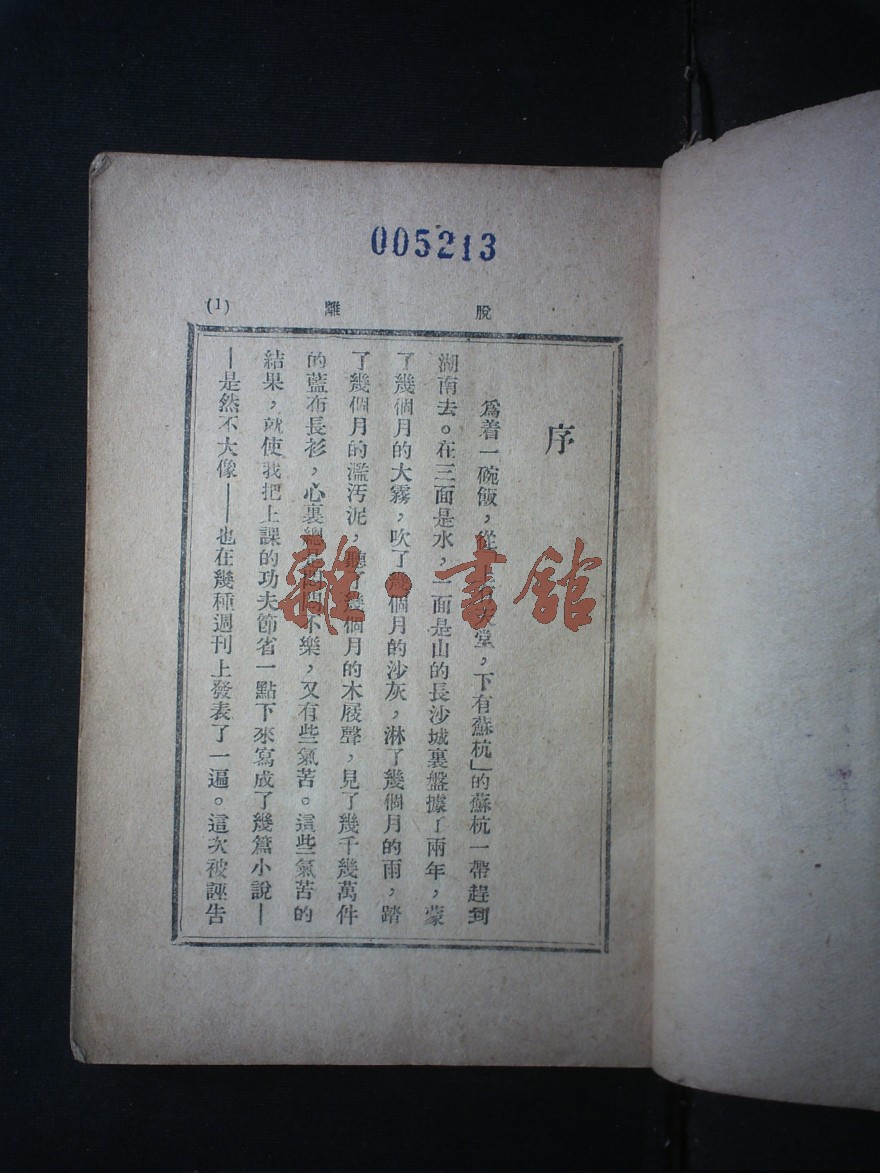 005213
脫離
(1)
序
爲着一碗飯,從 天堂,下有蘇杭」的蘇杭一帶趕到
湖南去。在三面是水,一面是山的長沙城裏盤據了兩年,蒙
了幾個月的大霧,吹了幾個月的沙灰,淋了幾個月的雨,踏
了幾個月的濫汚泥,聽了幾個月的木屐聲,見了幾千幾萬件
的藍布長衫,心裏總是悶悶不樂,又有些氣苦。這些氣苦的
結果,就使我把上課的功夫節省一點下來寫成了幾篇小說—
—是然不大像——也在幾種週刊上發表了一遍。這次被誣告
雜·書館